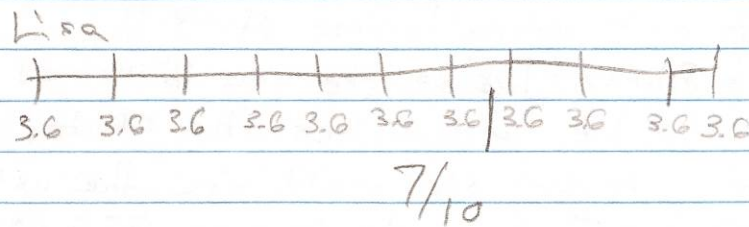 Lisa
3.6 3.6 3.6 3.6 3.6 3.6 3.6 3.6 3.6 3.6 3.6
7/10